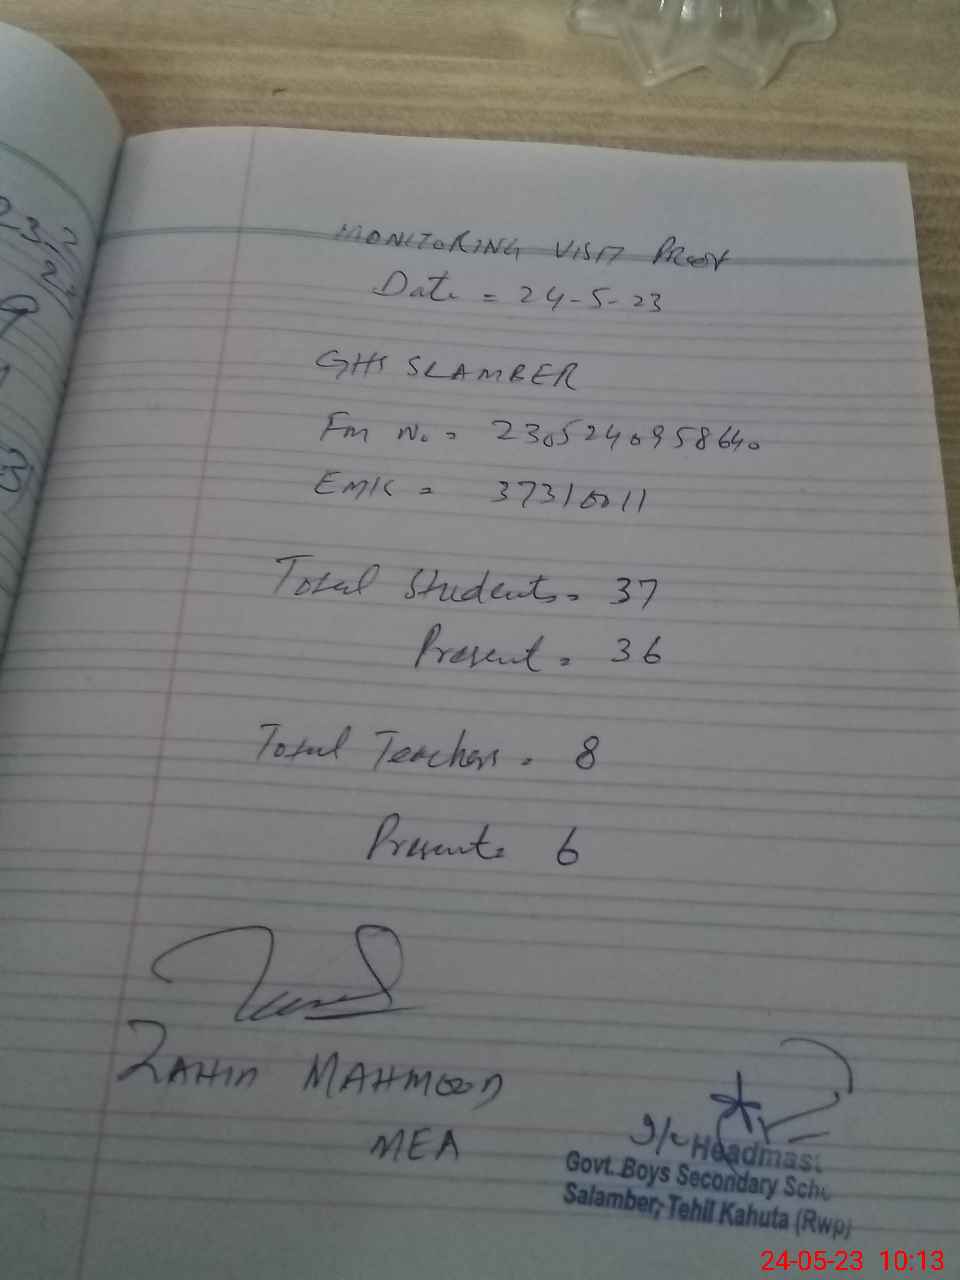 232
2
9
3
MONITORING VISIT PROOF
Date = 24-5-23
GHS SLAMBER
Fm No = 2305240958640
EMIS = 37310011
Total Students = 37
Present = 36
Total Teachers = 8
Present = 6
ZAHID MAHMOOD
MEA
I/c Headmast
Govt. Boys Secondary Scho
Salamber, Tehil Kahuta (Rwp)
24-05-23 10:13